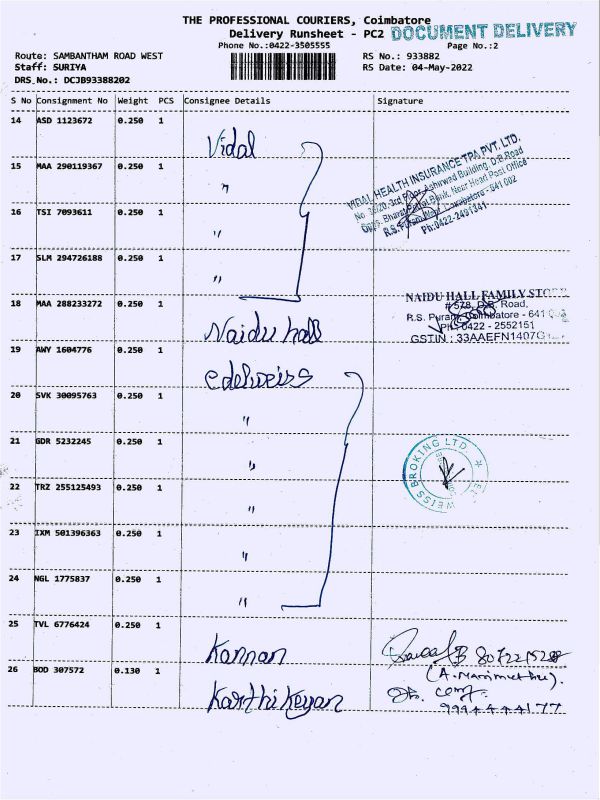 THE PROFESSIONAL COURIERS, Coimbatore
Delivery Runsheet - PC2 DOCUMENT DELIVERY
Phone No.:0422-3505555 Page No.:2
Route: SAMBANTHAM ROAD WEST RS No.: 933882
Staff: SURIYA RS Date: 04-May-2022
DRS_No.: DCJB93388202
S No Consignment No Weight PCS Consignee Details Signature
14 ASD 1123672 0.250 1 Vidal
15 MAA 290119367 0.250 1 "
16 TSI 7093611 0.250 1 "
17 SLM 294726188 0.250 1 "
VIDAL HEALTH INSURANCE TPA PVT. LTD.
No. 3rd Floor, Ashirwad Building, D.B.Road
Opp. Bharat Bank, Near Head Post Office
R.S. Puram Coimbatore - 641 002
Ph:0422-2491341
18 MAA 288233272 0.250 1 Naidu hall
NAIDU HALL FAMILY
# 578, D.B. Road,
R.S. Puram, Coimbatore - 641
Ph: 0422 - 2552151
GSTIN : 33AAEFN1407G
19 AWY 1604776 0.250 1 edelweiss
20 SVK 30095763 0.250 1 "
21 GDR 5232245 0.250 1 "
22 TRZ 255125493 0.250 1 "
23 IXM 501396363 0.250 1 "
24 NGL 1775837 0.250 1 "
WEISS BROKING LTD.
25 TVL 6776424 0.250 1 Kannan
26 BOD 307572 0.130 1 Karthikeyan
(A. Marimuthu).
9994444177